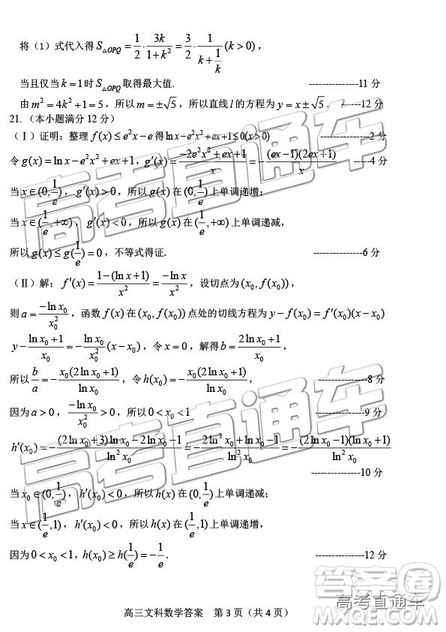 将（1）式代入得 S△OPQ = 1/2 · 3k/(1+k²) = 3/2 · 1/(k+1/k) (k>0)，
当且仅当 k=1 时 S△OPQ 取得最大值. ---------------11 分
由 m²=4k²+1=5，所以 m=±√5，所以直线 l 的方程为 y=x±√5. ---12 分
21.（本小题满分 12 分）
（Ⅰ）证明：整理 f(x)≤e²x−e 得 ln x−e²x²+ex+1≤0(x>0) ---2 分
令 g(x)=ln x−e²x²+ex+1，g′(x)=(−2e²x²+ex+1)/x=−(ex−1)(2ex+1)/x ---4 分
当 x∈(0,1/e)，g′(x)>0，所以 g(x) 在 (0,1/e) 上单调递增；
当 x∈(1/e,+∞)，g′(x)<0，所以 g(x) 在 (1/e,+∞) 上单调递减，
所以 g(x)≤g(1/e)=0，不等式得证. ---6 分
（Ⅱ）解：f′(x)=(1−(ln x+1))/x²=−ln x/x²，设切点为 (x₀,f(x₀))，
则 a=−ln x₀/x₀²，函数 f(x) 在 (x₀,f(x₀)) 点处的切线方程为 y−f(x₀)=f′(x₀)(x−x₀)
y−(ln x₀+1)/x₀=−ln x₀/x₀²(x−x₀)，令 x=0，解得 b=(2ln x₀+1)/x₀
所以 b/a=−x₀(2ln x₀+1)/ln x₀，令 h(x₀)=−x₀(2ln x₀+1)/ln x₀ ---8 分
因为 a>0，−ln x₀/x₀²>0，所以 0<x₀<1 ---9 分
h′(x₀)=−((2ln x₀+3)ln x₀−2ln x₀−1)/ln²x₀=−(2ln²x₀+ln x₀−1)/ln²x₀=−(2ln x₀−1)(ln x₀+1)/ln²x₀
---10 分
当 x₀∈(0,1/e)，h′(x₀)<0，所以 h(x₀) 在 (0,1/e) 上单调递减；
当 x₀∈(1/e,1)，h′(x₀)>0，所以 h(x₀) 在 (1/e,1) 上单调递增，
因为 0<x₀<1，h(x₀)≥h(1/e)= ---12 分
高三文科数学答案 第 3 页（共 4 页）
高考直通车